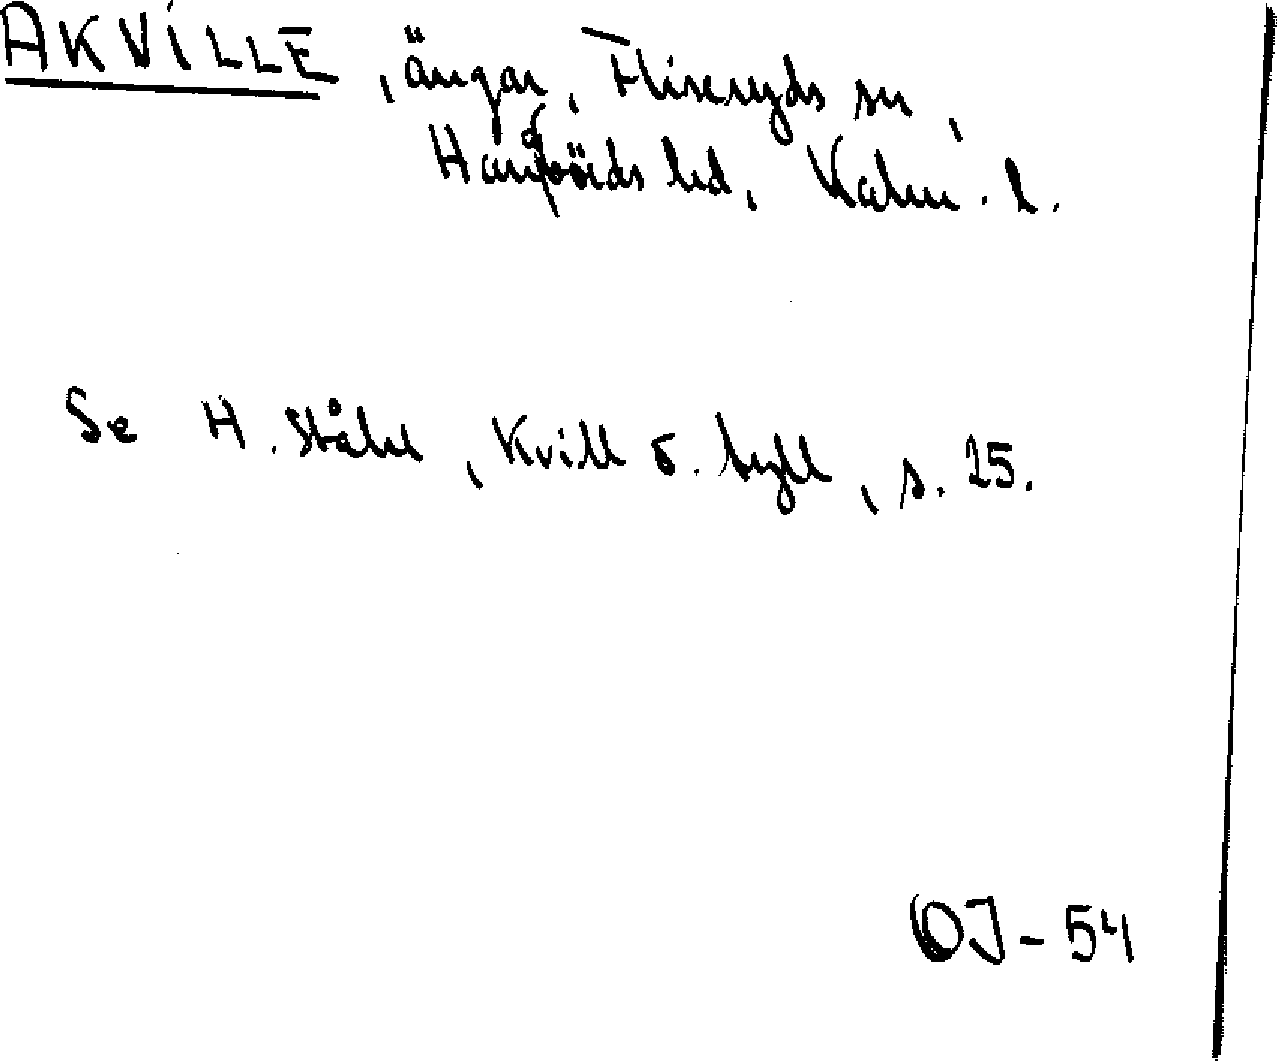 AKVILLE, ängar, Fliseryds sn,
Handbörds hd, Kalm. l.
Se H. Ståhl, Kvill o. tyll, s. 25.
OJ-54